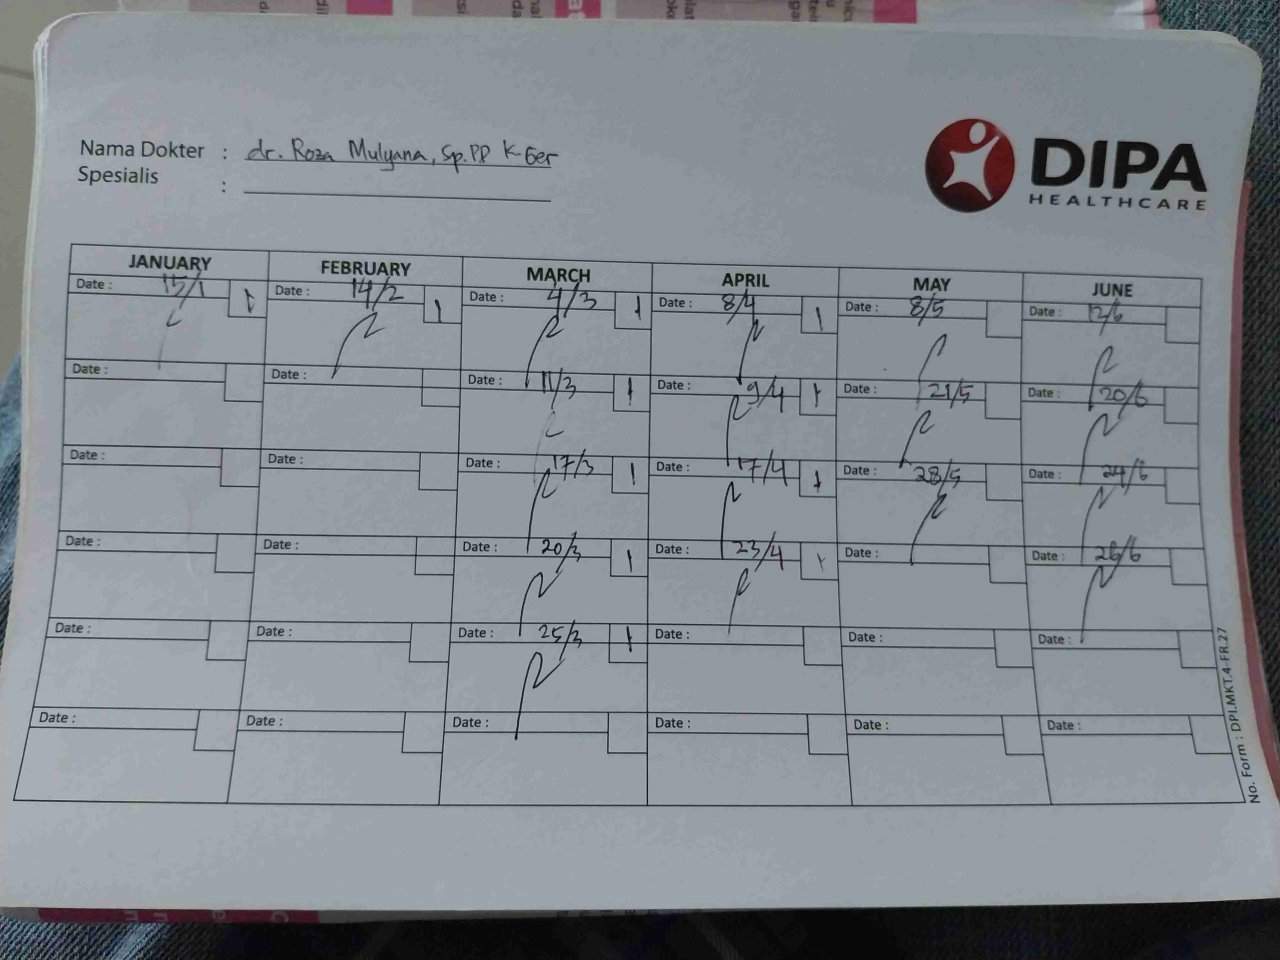 Nama Dokter : dr. Roza Mulyana, Sp.PD K-Ger
Spesialis :
DIPA
HEALTHCARE
JANUARY FEBRUARY MARCH APRIL MAY JUNE
Date : 15/1 1 Date : 14/2 1 Date : 4/3 1 Date : 8/4 1 Date : 8/5 Date : 12/6
Date : Date : Date : 11/3 1 Date : 9/4 1 Date : 21/5 Date : 20/6
Date : Date : Date : 17/3 1 Date : 17/4 1 Date : 28/5 Date : 24/6
Date : Date : Date : 20/3 1 Date : 23/4 1 Date : Date : 26/6
Date : Date : Date : 25/3 1 Date : Date : Date :
Date : Date : Date : Date : Date : Date :
No. Form : DPI.MKT.4-FR.27